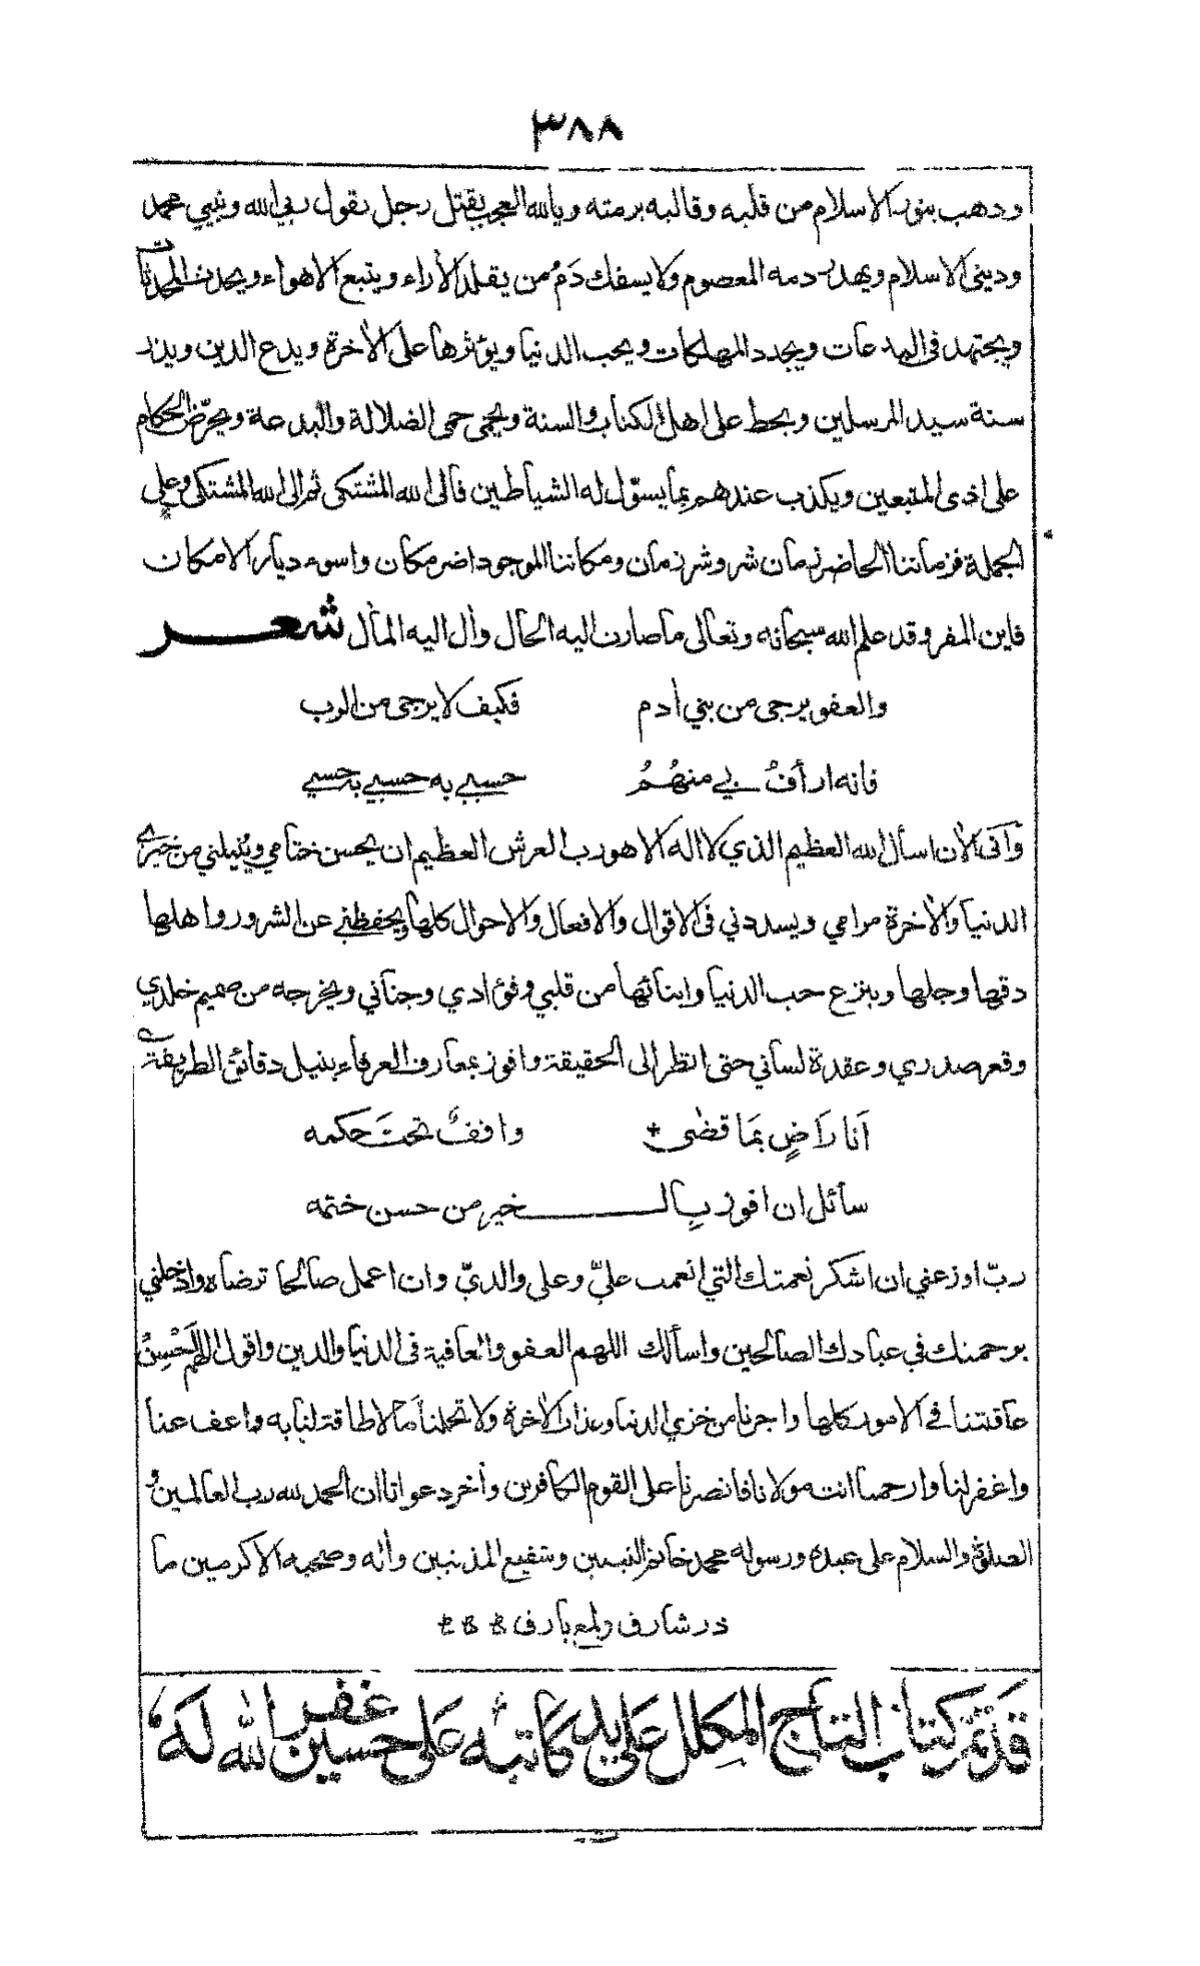 ٣٨٨
وذهب بنور الاسلام من قلبه وقالبه برمته ويالله العجب يقتل رجل يقول ربي الله ونبيي محمد
وديني الاسلام ويهدر دمه المعصوم ولا يسفك دَمُ من يقلد الأراء ويتبع الاهواء ويحدث المحدثات
ويجتهد فى البدعات ويجدد المهلكات ويحب الدنيا ويؤثرها على الأخرة ويدع الدين ويذر
سنة سيد المرسلين ويحط على اهل الكتاب والسنة ويحمى حمى الضلالة والبدعة ويحرّض الحكام
على اذى المتبعين ويكذب عندهم بما يسوّل له الشياطين فالى الله المشتكى ثم الى الله المشتكى وعلى
الجملة فزماننا الحاضر زمان شر وشر زمان ومكاننا الموجود اضر مكان واسوء ديار الامكان
فاين المفر وقد علم الله سبحانه وتعالى ما صارت اليه الحال وأل اليه المأل شعر
والعفو يرجى من بني أدم فكيف لا يرجى من الرب
فانه ارأفُ بي منهُمُ حسبي به حسبي به حسبي
وأنى الأن اسأل الله العظيم الذي لا اله الا هو رب العرش العظيم ان يحسن ختامي وينيلني من خيري
الدنيا والأخرة مرامي ويسددني فى الاقوال والافعال والاحوال كلها ويحفظني عن الشرور واهلها
دقها وجلها وينزع حب الدنيا وابنائها من قلبي وفؤادي وجناني ويخرجه من صميم خلدي
وقعر صدري وعقدة لساني حتى انظر الى الحقيقة وافوز بمعارف العرفاء بنيل دقائق الطريقة
اَنا رَاضٍ بمَا قضٰى * واقفٌ تحتَ حكمه
سائل ان افوز بِالـخير من حسن ختمه
ربّ اوزعني ان اشكر نعمتك التي انعمت عليّ وعلى والديّ وان اعمل صالحا ترضاه وادخلني
برحمتك في عبادك الصالحين واسألك اللهم العفو والعافية فى الدنيا والدين واقول اللهم اَحْسِنْ
عاقبتنا في الامور كلها واجرنا من خزي الدنيا وعذاب الأخرة ولا تحملنا ما لا طاقة لنا به واعف عنا
واغفر لنا وارحمنا انت مولانا فانصرنا على القوم الكافرين وأخر دعوانا ان الحمد لله رب العالمين و
الصلوة والسلام على عبده ورسوله محمد خاتم النبيين وشفيع المذنبين وأله وصحبه الاكرمين ما
ذر شارق ولمع بارق
قَد تمّ كتاب التاج المكلل على يد كاتبه على حسين غفر الله لَهُ